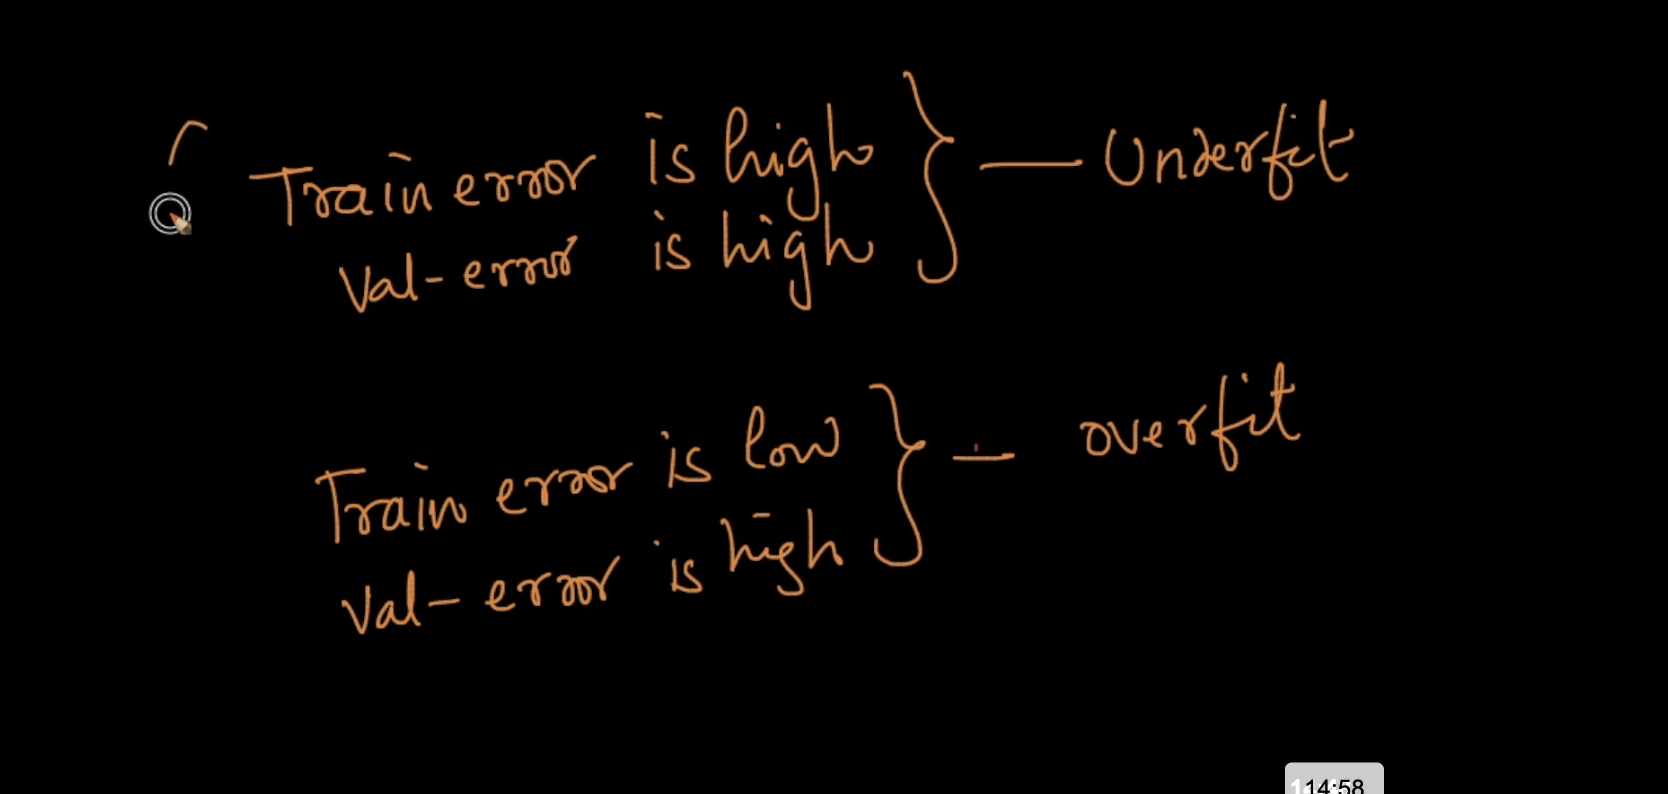 Train error is high
Val-error is high
Underfit
Train error is low
Val-error is high
overfit
14:58